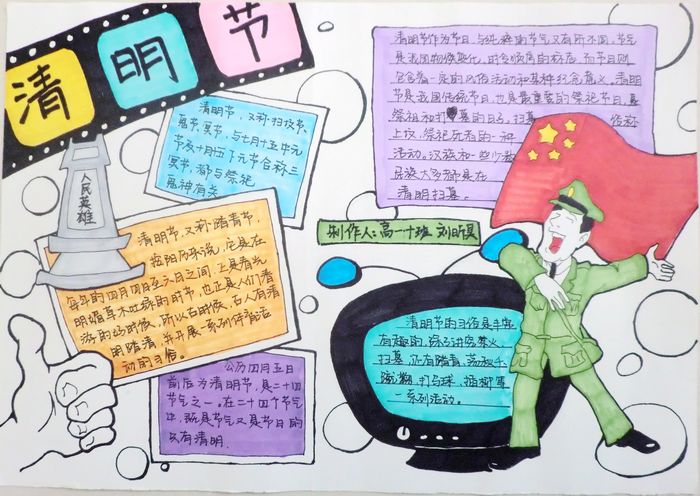 清明节
清明节，又称扫坟节、
鬼节、冥节，与七月十五中元
节及十月十五下元节合称三
冥节，都与祭祀
鬼神有关
清明节作为节日，与纯粹的节气又有所不同。节气
是我国物候变化、时令顺序的标志，而节日则
包含着一定的风俗活动和某种纪念意义。清明
节是我国传统节日，也是最重要的祭祀节日，是
祭祖和扫墓的日子。扫墓 俗称
上坟，祭祀死者的一种
活动。汉族和一些少数
民族大多都是在
清明扫墓。
人民英雄
清明节，又称踏青节，
按阳历来说，它是在
每年的四月四日至六日之间，正是春光
明媚草木吐绿的时节，也正是人们春
游的好时候，所以古人有清
明踏青，并开展一系列体育活
动的习俗。
制作人：高一十班 刘昕昊
清明节的习俗是丰富
有趣的，除了讲究禁火、
扫墓，还有踏青、荡秋千、
蹴鞠、打马球、插柳等
一系列活动。
公历四月五日
前后为清明节，是二十四
节气之一。在二十四个节气
中，既是节气又是节日的
只有清明。